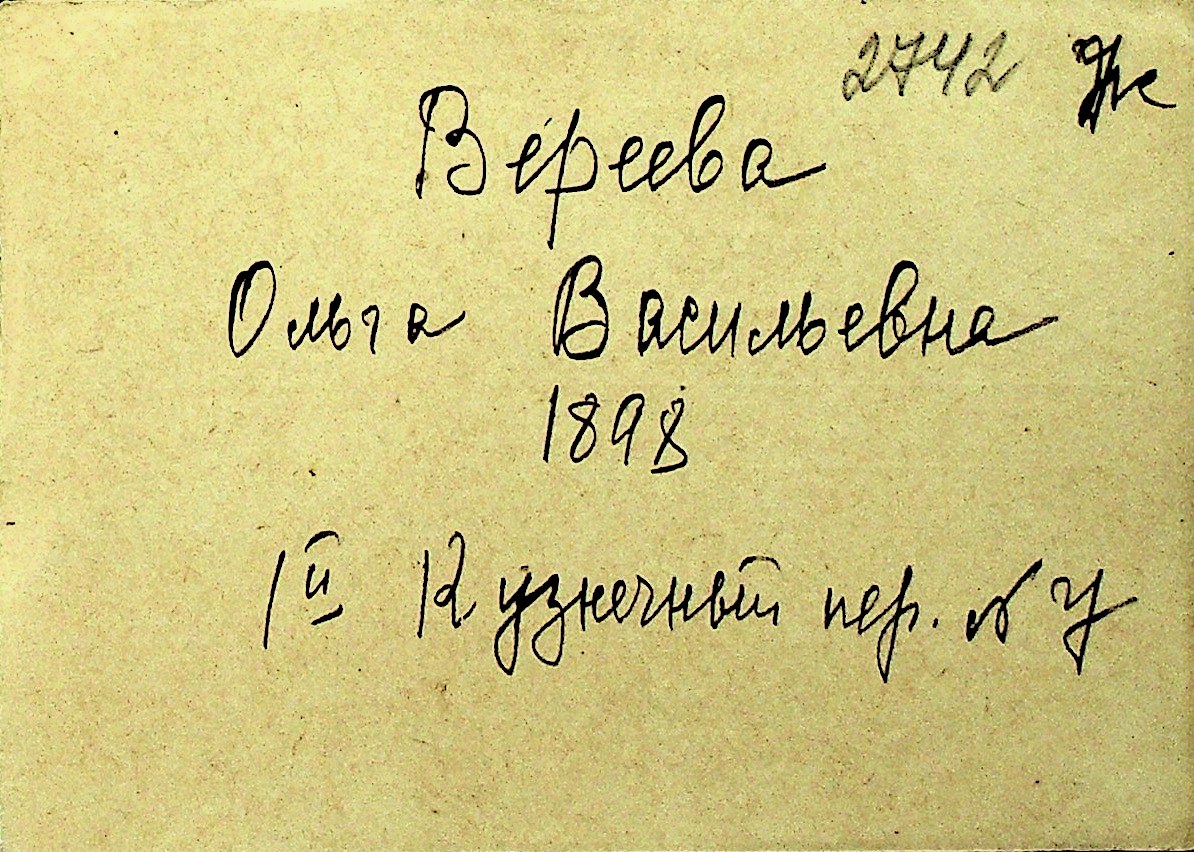 2742
Вереева
Ольга Васильевна
1898
1й Кузнечный пер. №